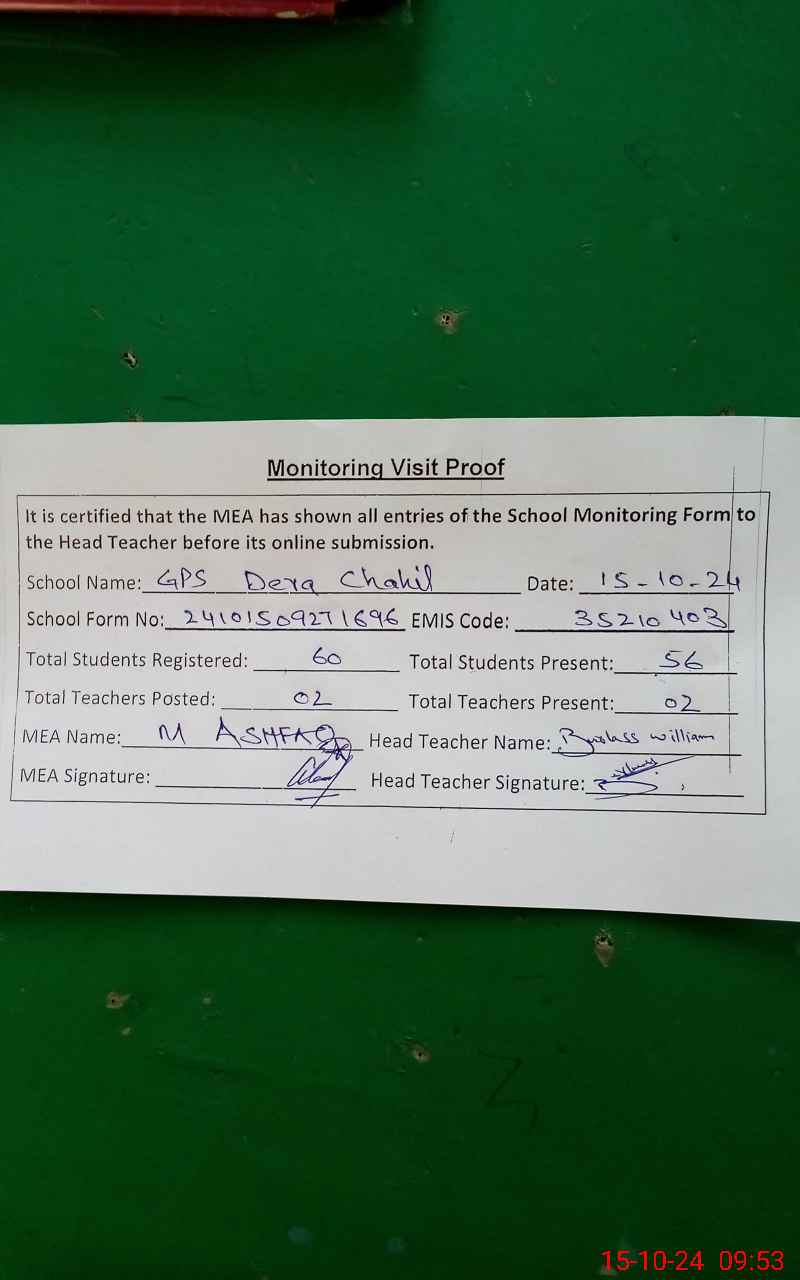 Monitoring Visit Proof
It is certified that the MEA has shown all entries of the School Monitoring Form to
the Head Teacher before its online submission.
School Name: GPS Dera Chahil Date: 15-10-24
School Form No: 24101509271696 EMIS Code: 35210403
Total Students Registered: 60 Total Students Present: 56
Total Teachers Posted: 02 Total Teachers Present: 02
MEA Name: M ASHFAQ Head Teacher Name: william
MEA Signature: Head Teacher Signature:
15-10-24 09:53